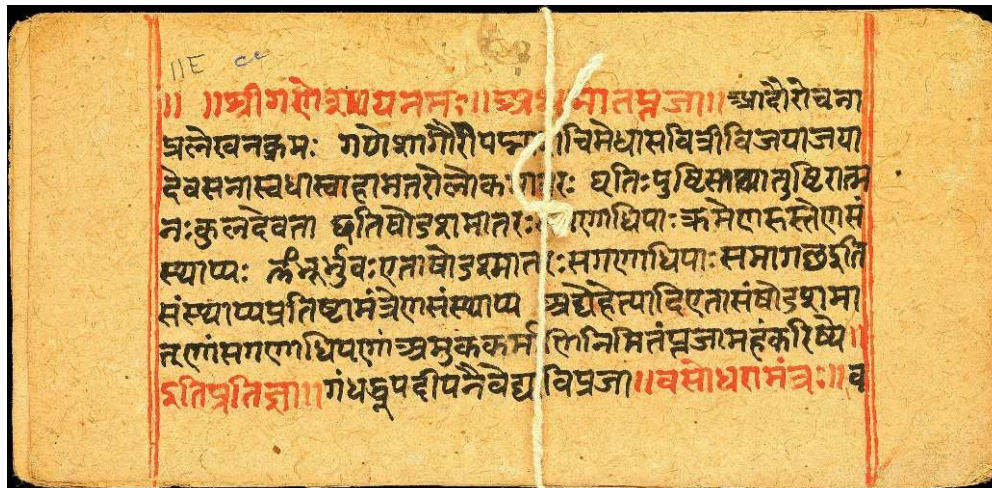 ॥E
॥ ॥श्रीगणेशायनमः॥ अथ मातपूजा॥ आदौरोचना
प्रलेखनक्रमः गणेशागौरीपद्मा चिमेधासवित्रीविजयाजया
देवसेनास्वधास्वाहामतरोलोक तरः धृतिःपुष्टिस्तथातुष्टिरात्म
नःकुलदेवता धृतिषोडशमातरः णाधिपाः क्रमेणहस्तेणसं
स्थाप्यः भूर्भुवःएताषोडशमातरःसगणाधिपाःसमागछइति
संस्थाप्यप्रतिष्टामंत्रेणसंस्थाप्य अद्येहेत्यादिएतासंषोडशमा
तृणांसगणाधिपणांअमुककर्माणिनिमितंपूजामहंकरिष्ये॥
इतिप्रतिज्ञा॥ गंधधूपदीपनैवेद्य विपूजा॥ वसोधरामंत्रः॥ व